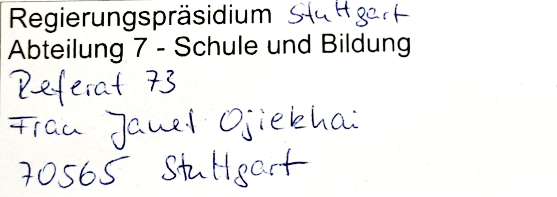 Regierungspräsidium Stuttgart
Abteilung 7 - Schule und Bildung
Referat 73
Frau Janet Ojiekhai
70565 Stuttgart